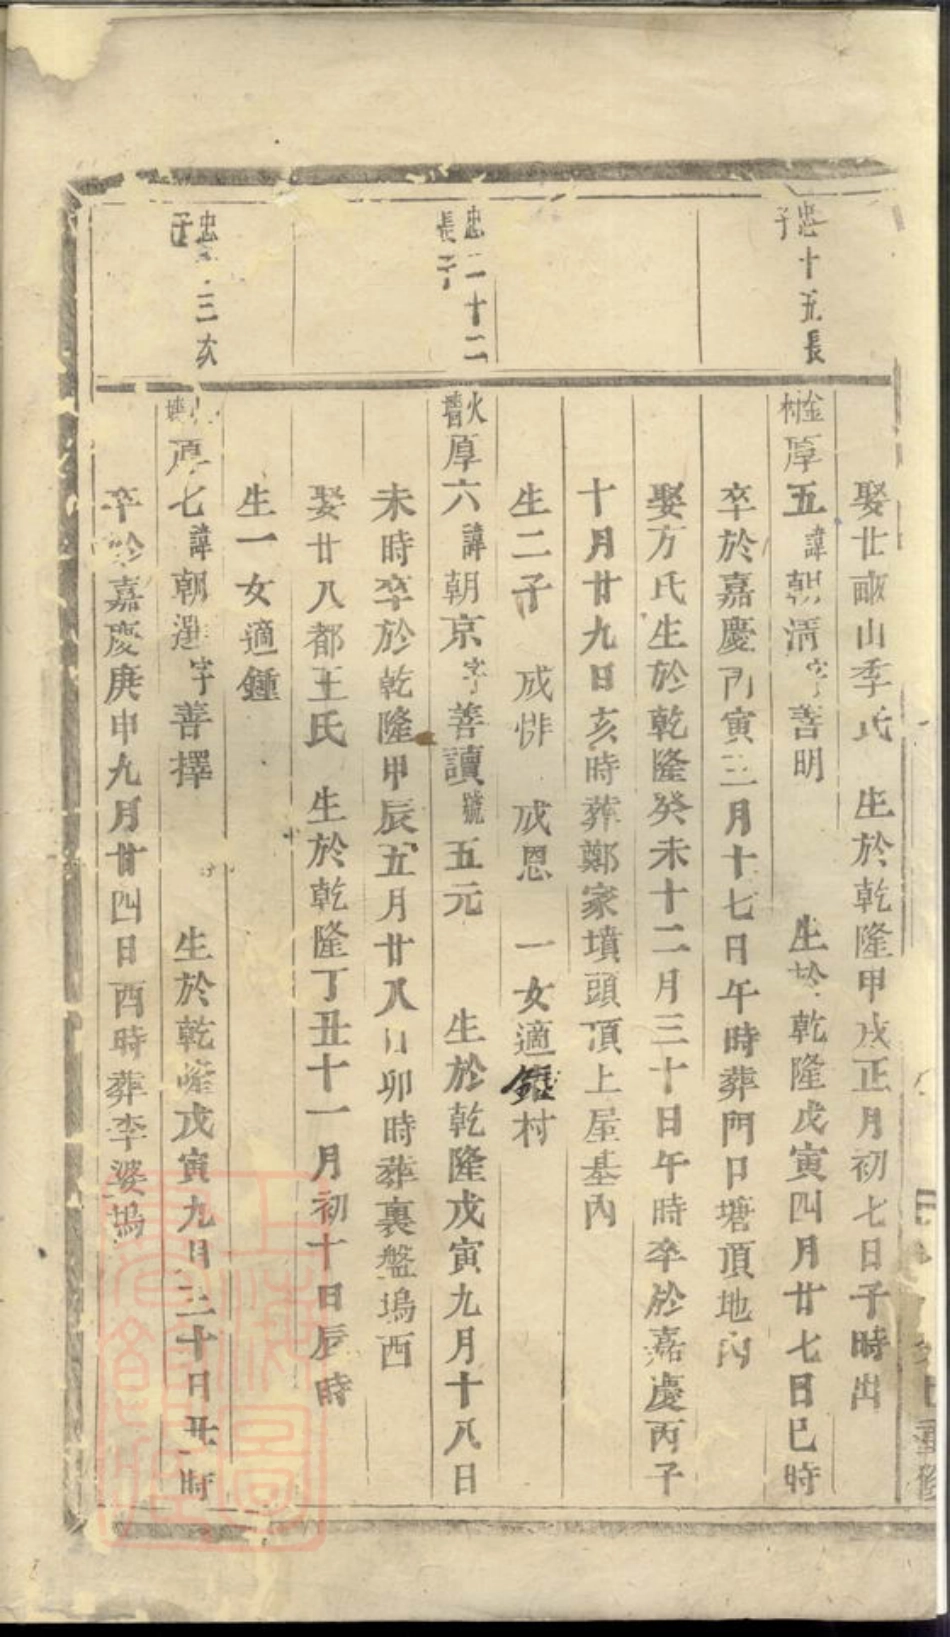 娶廿畝山季氏 生於乾隆甲戌正月初七日子時出
忠十五長
子
金村厚五諱朝清字善明 生於乾隆戊寅四月廿七日巳時
卒於嘉慶丙寅三月十七日午時葬門口塘頂地內
娶方氏生於乾隆癸未十二月三十日午時卒於嘉慶丙子
十月廿九日亥時葬鄭家墳頭頂上屋基內
生二子 成悱 成恩 一女適 村
忠二十二
長子
火舊厚六諱朝京字善讀號五元 生於乾隆戊寅九月十八日
未時卒於乾隆甲辰五月廿八日卯時葬裏盤塢西
娶廿八都王氏 生於乾隆丁丑十一月初十日辰時
生一女適鍾
忠 三次
子
塘厚七諱朝選字善擇 生於乾隆戊寅九月三十日丑時
卒於嘉慶庚申九月廿四日酉時葬李婆塢